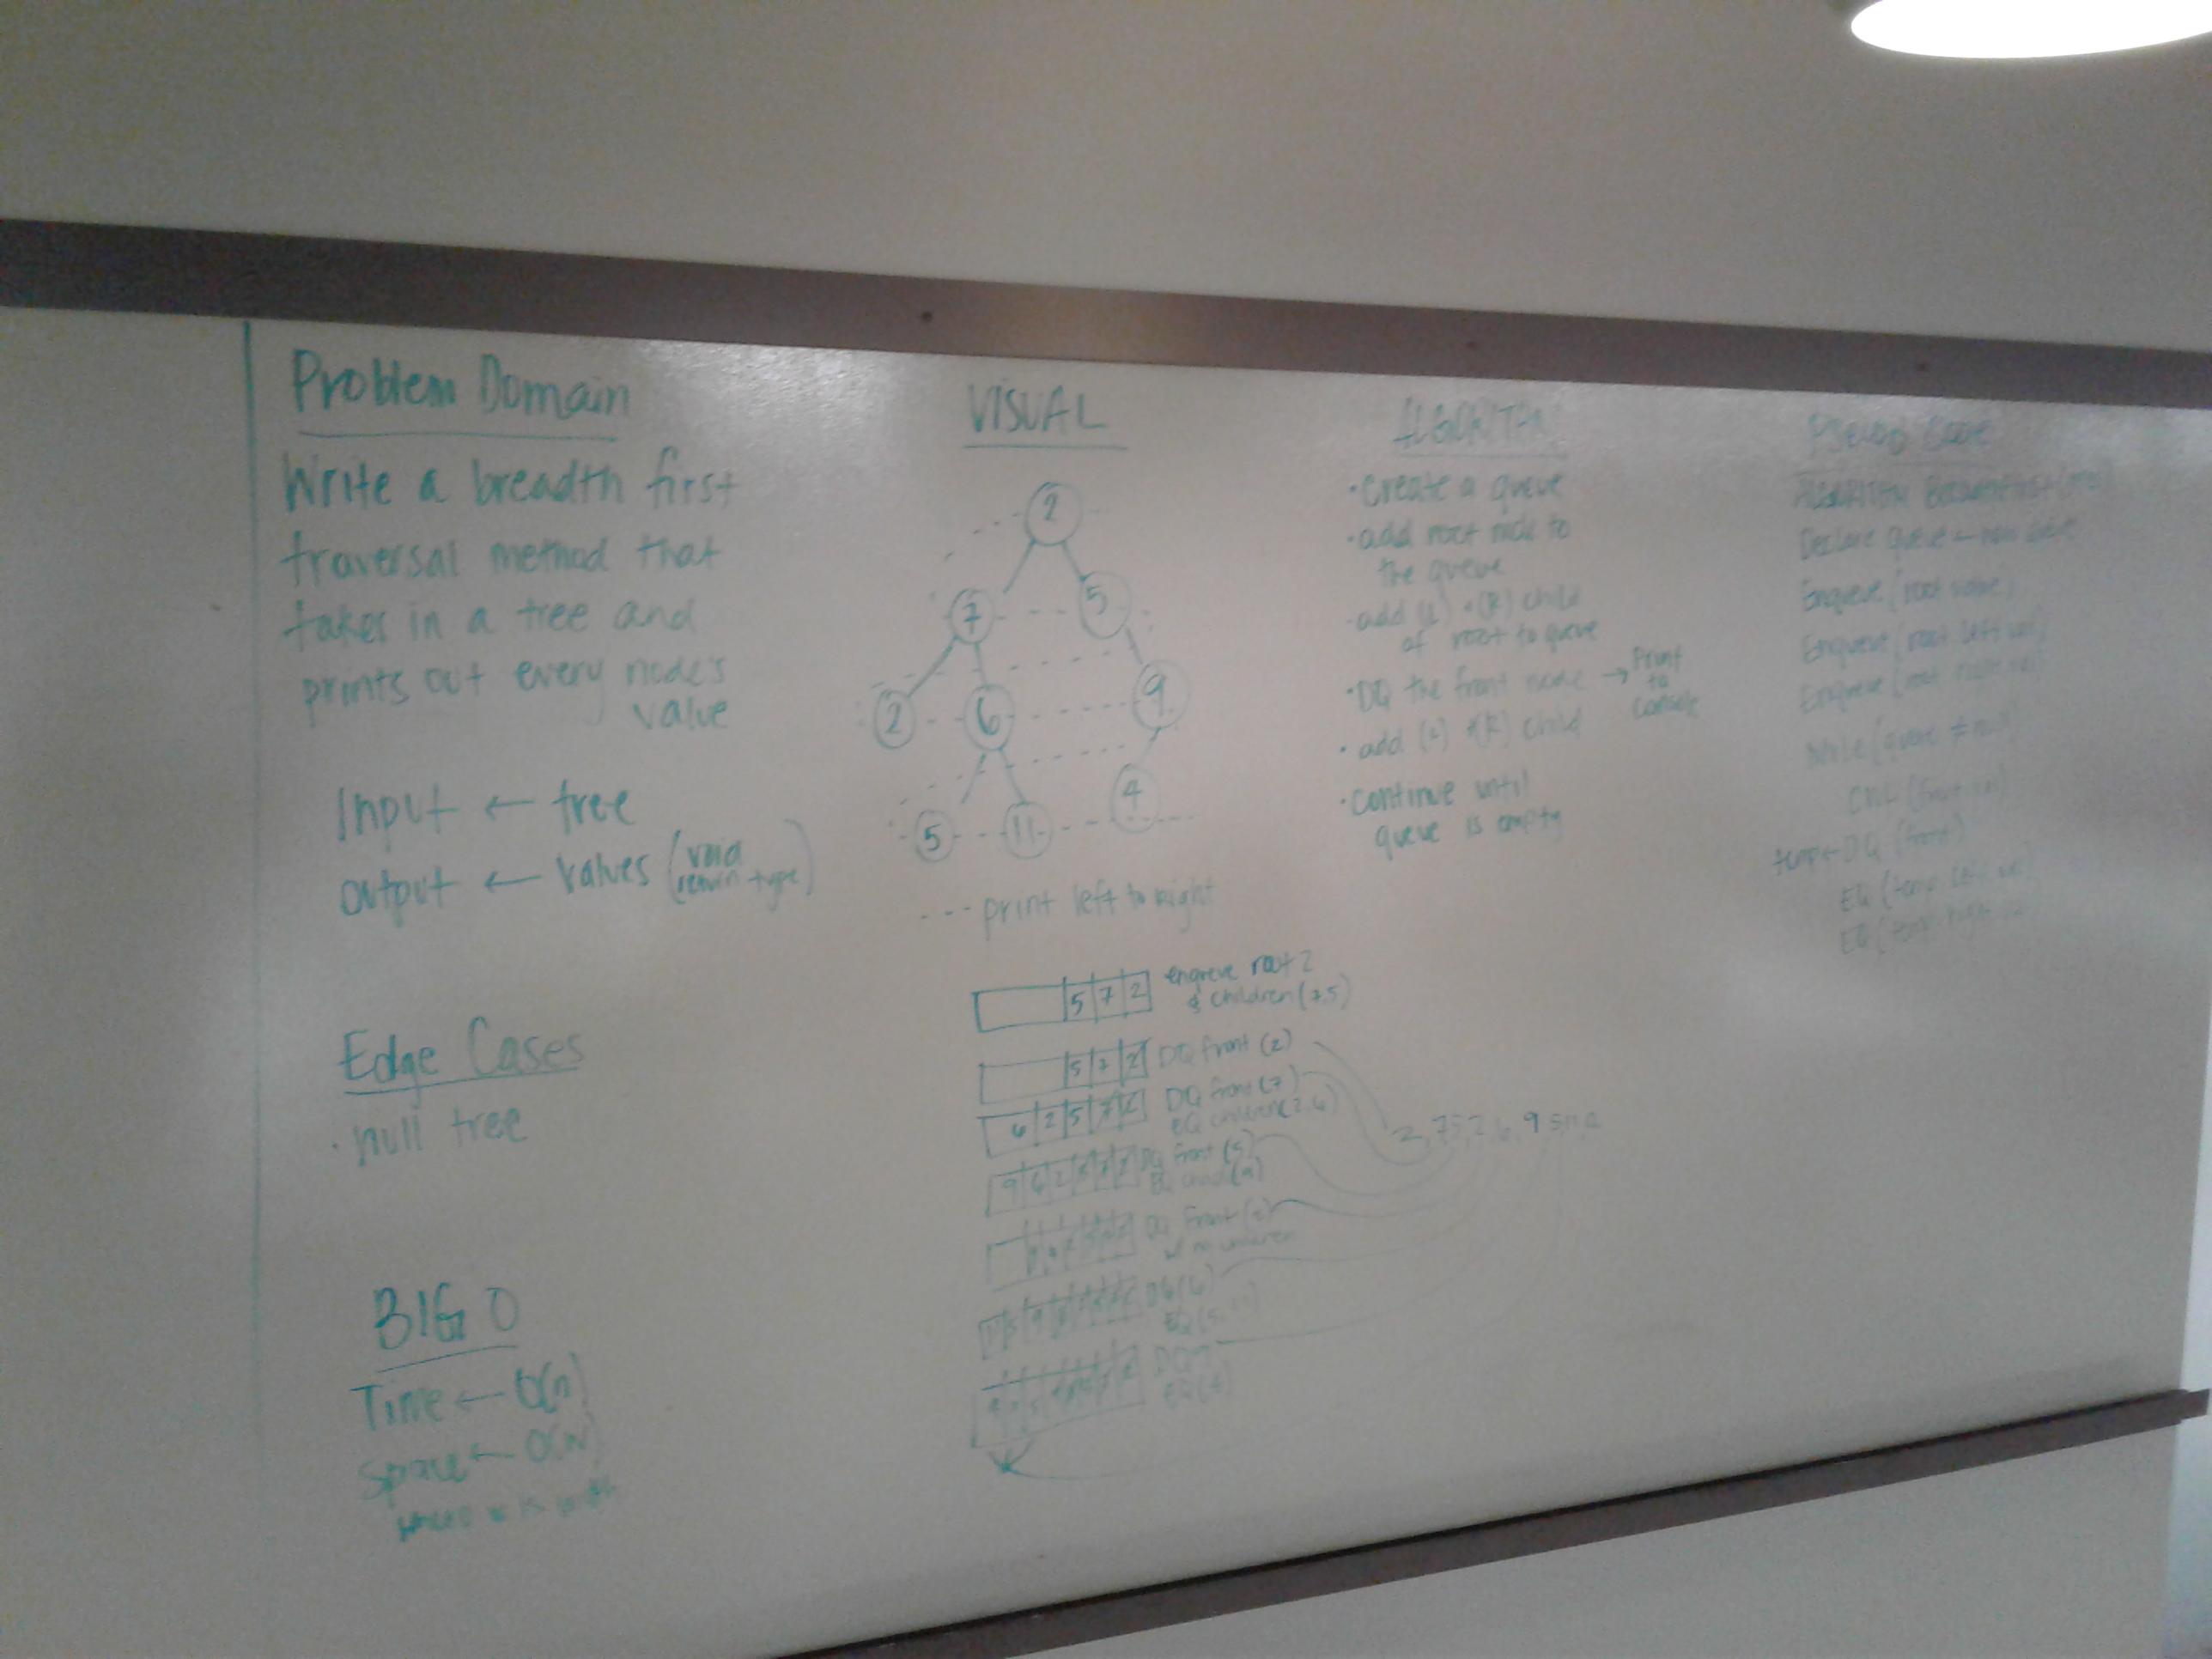 Problem Domain
Write a breadth first
traversal method that
takes in a tree and
prints out every node's
value
Input ← tree
output ← values (void
return type)
Edge Cases
· null tree
BIG O
Time ← O(n)
Space ← O(w)
where w is width
VISUAL
2
7 5
2 6 9
5 11 4
--- print left to right
5 7 2 enqueue root 2
& children (7,5)
5 7 2 DQ front (2)
6 2 5 7 2 DQ front (7)
EQ children (2,6)
9 6 2 5 7 2 DQ front (5)
EQ child (9)
DQ front (2)
w/ no children
DQ (6)
EQ (5, 11)
DQ 9
EQ (4)
2, 7 5, 2, 6, 9
ALGORITHM
· create a queue
· add root node to
the queue
· add (L) + (R) child
of root to queue
· DQ the front node → Print to console
· add (L) + (R) child
· continue until
queue is empty
Pseudo Code
Algorithm BreadthFirst
Declare queue ← new queue
Enqueue (root value)
Enqueue (root left val)
Enqueue (root right val)
While (queue ≠ null)
temp ← DQ (front)
EQ (temp left val)
EQ (temp right